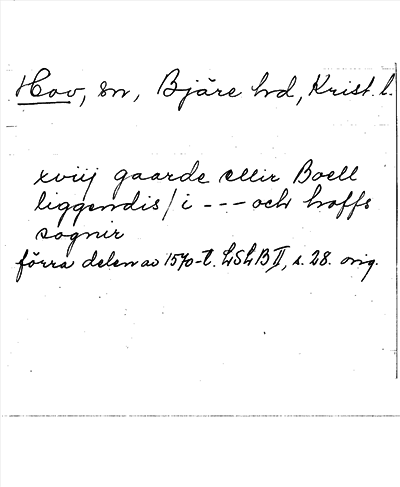 Hov, sn, Bjäre hd, Krist. l.
xviij gaarde ellir Boell
liggendis / i --- och hoffs
sognir
förra delen av 1570-t. LSLB II, s. 28. orig.